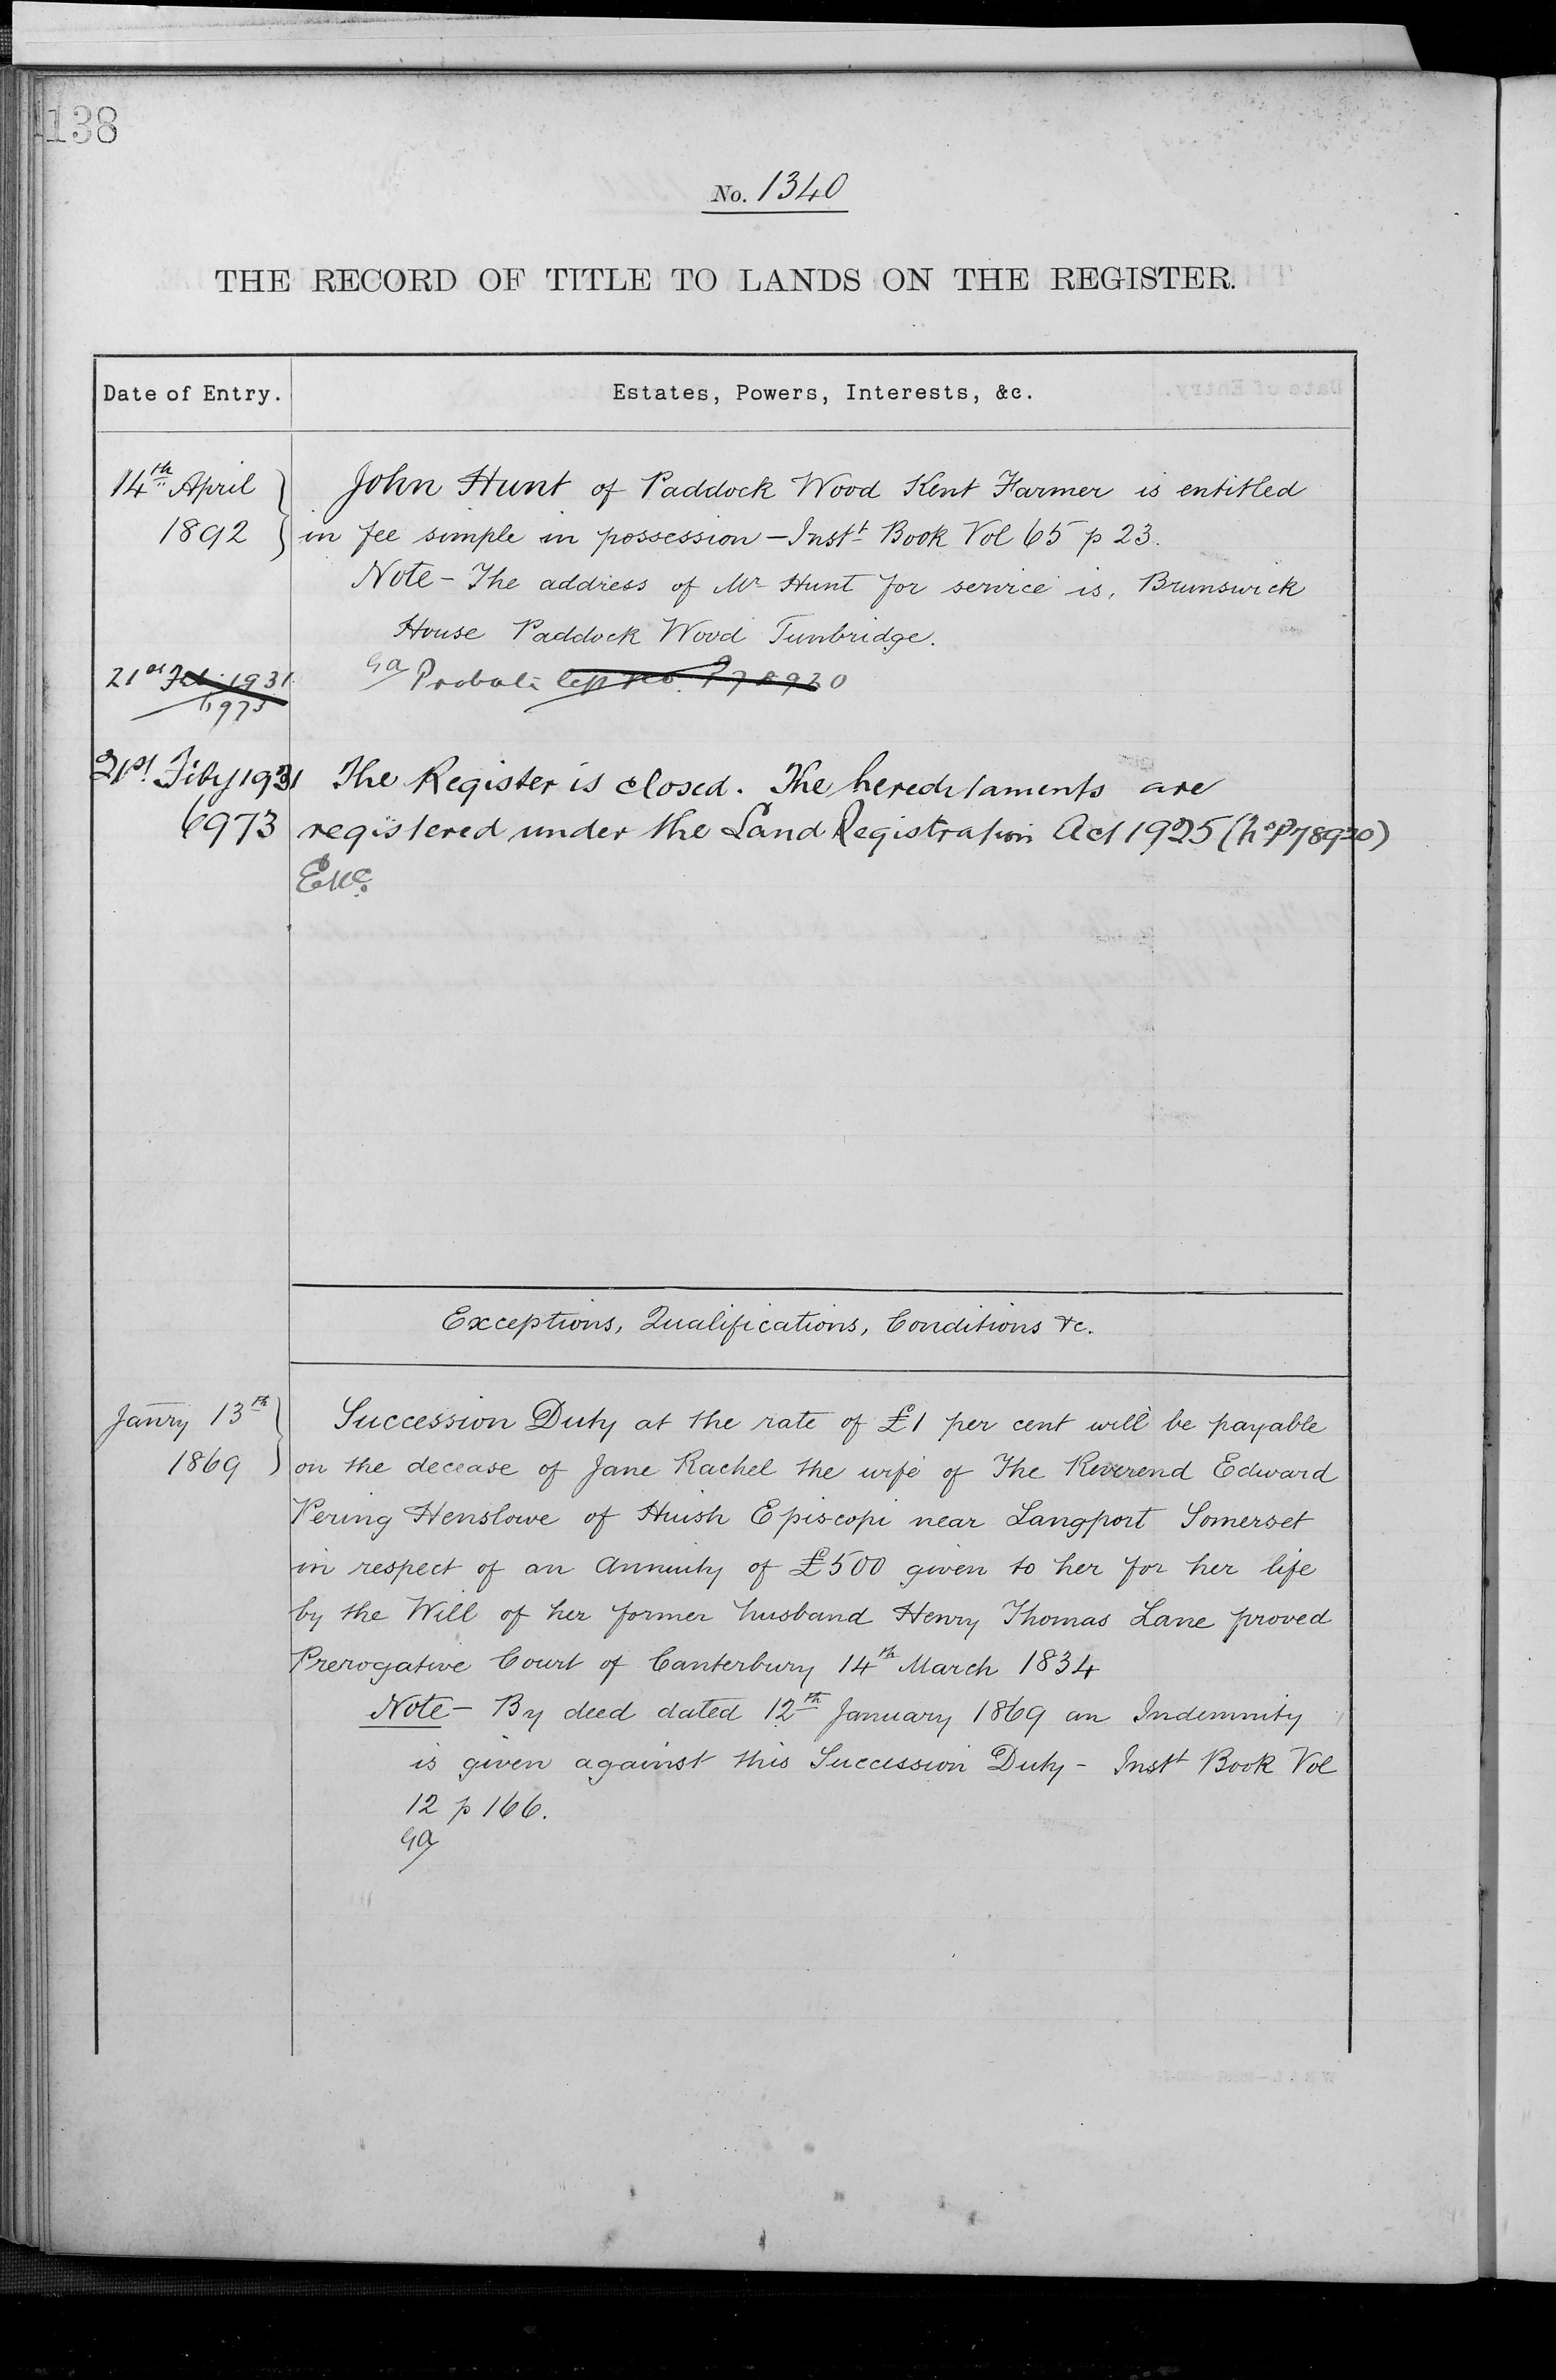 138
No. 1340
THE RECORD OF TITLE TO LANDS ON THE REGISTER.
Date of Entry. Estates, Powers, Interests, &c.
14th April John Hunt of Paddock Wood Kent Farmer is entitled
1892 in fee simple in possession - Instt Book Vol 65 p 23.
Note - The address of Mr Hunt for service is, Brunswick
House Paddock Wood Tunbridge.
21st Feb. 1931 GA Probate P78930
21st Feby 1931 The Register is closed. The hereditaments are
6973 registered under the Land Registration Act 1925 (No P78930)
Exceptions, Qualifications, Conditions &c.
Janry 13th Succession Duty at the rate of £1 per cent will be payable
1869 on the decease of Jane Rachel the wife of The Reverend Edward
Pering Henslowe of Huish Episcopi near Langport Somerset
in respect of an Annuity of £500 given to her for her life
by the Will of her former husband Henry Thomas Lane proved
Prerogative Court of Canterbury 14th March 1834
Note - By deed dated 12th January 1869 an Indemnity
is given against this Succession Duty - Instt Book Vol
12 p 166.
GA